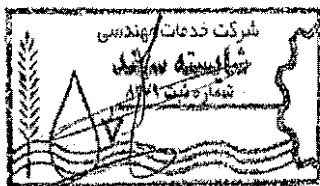 شرکت خدمات مهندسی
شایسته سازند
شماره ثبت ۸۴۷۹